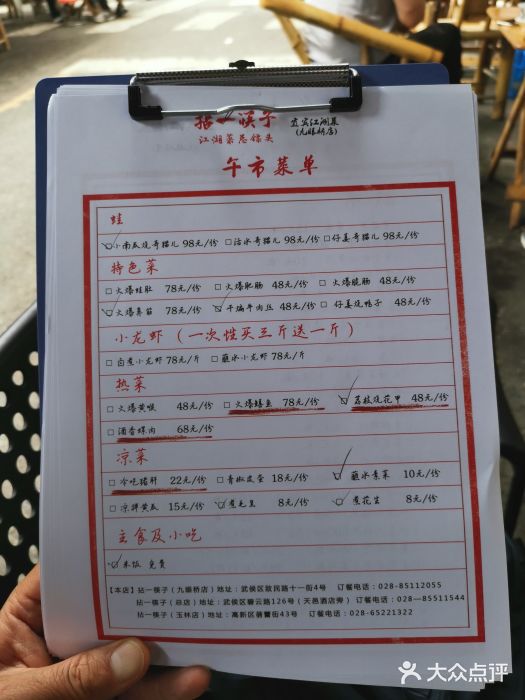 拈一筷子 宜宾江湖菜
江湖菜总馆头 (九眼桥店)
午市菜单
蛙
小南瓜烧哥猫儿 98元/份 □沾水哥猫儿 98元/份 □仔姜哥猫儿 98元/份
特色菜
□火爆蛙肚 78元/份 □火爆肥肠 48元/份 □火爆脆肠 48元/份
□火爆鼻筋 78元/份 □干煸牛肉丝 48元/份 □仔姜烧鸭子 48元/份
小龙虾 (一次性买三斤送一斤)
□白煮小龙虾 78元/斤 □蘸水小龙虾 78元/斤
热菜
□火爆黄喉 48元/份 □火爆鳝鱼 78元/份 □荔枝烧花甲 48元/份
□酒香螺肉 68元/份
凉菜
□冷吃猪肝 22元/份 □青椒皮蛋 18元/份 蘸水素菜 10元/份
□凉拌黄瓜 15元/份 □煮毛豆 8元/份 □煮花生 8元/份
主食及小吃
□米饭 免费
【本店】拈一筷子(九眼桥店)地址:武侯区致民路十一街4号 订餐电话:028-85112055
拈一筷子(总店)地址:武侯区碧云路126号(天邑酒店旁) 订餐电话:028—85511544
拈一筷子(玉林店)地址:高新区蓓蕾街43号 订餐电话:028-65221322
大众点评